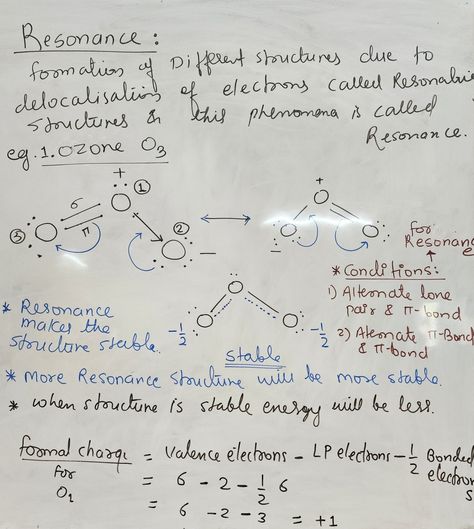 Resonance :
formation of Different structures due to
delocalisation of electrons called Resonating
structures & this phenomena is called
Resonance.
eg. 1. Ozone O3
+ ①
σ
π
③
②
−
+
−
for
Resonance
* Conditions:
1) Alternate lone
pair & π-bond
2) Alternate π-Bond
& π-bond
* Resonance
makes the
structure stable.
-1/2
-1/2
stable
* More Resonance structure will be more stable.
* when structure is stable energy will be less.
formal charge = Valence electrons - LP electrons - 1/2 Bonded
electrons
for
O1
= 6 - 2 - 1/2 6
= 6 - 2 - 3 = +1